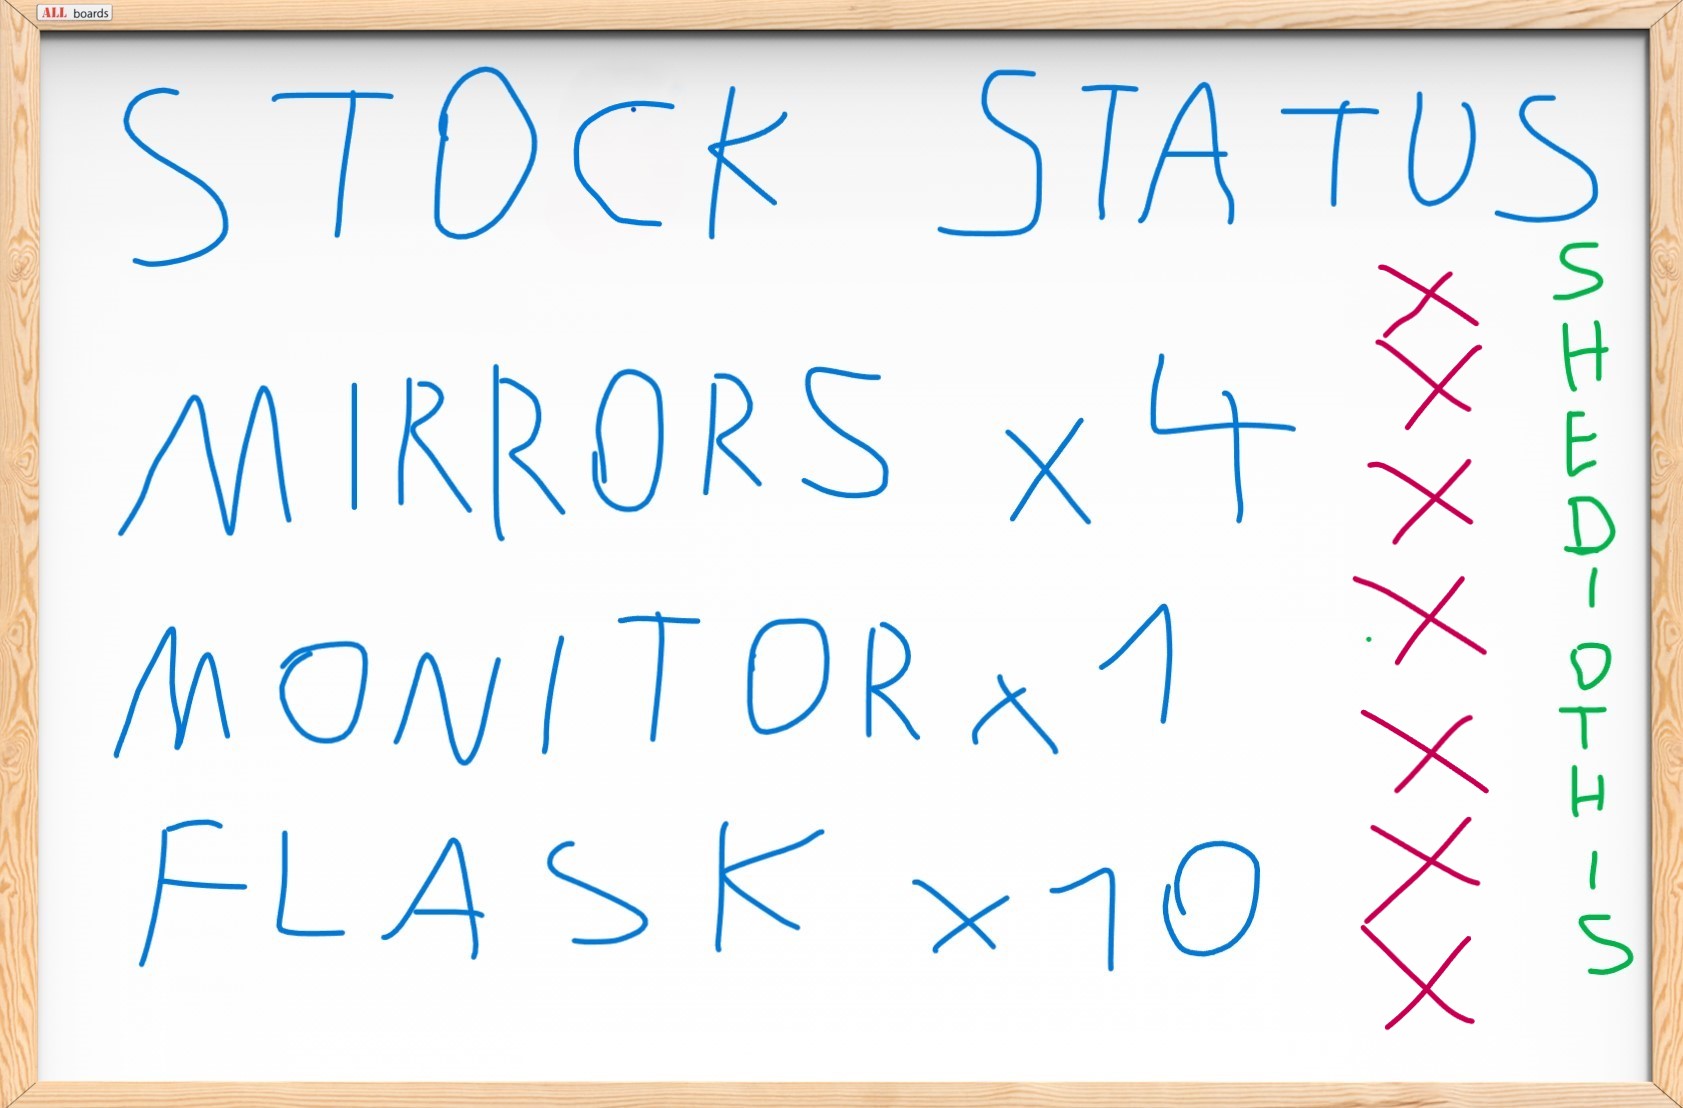 ALL boards
STOCK STATUS
MIRRORS x 4
MONITOR x 1
FLASK x 10
X
X
X
X
X
X
X
SHEDIOTHIS